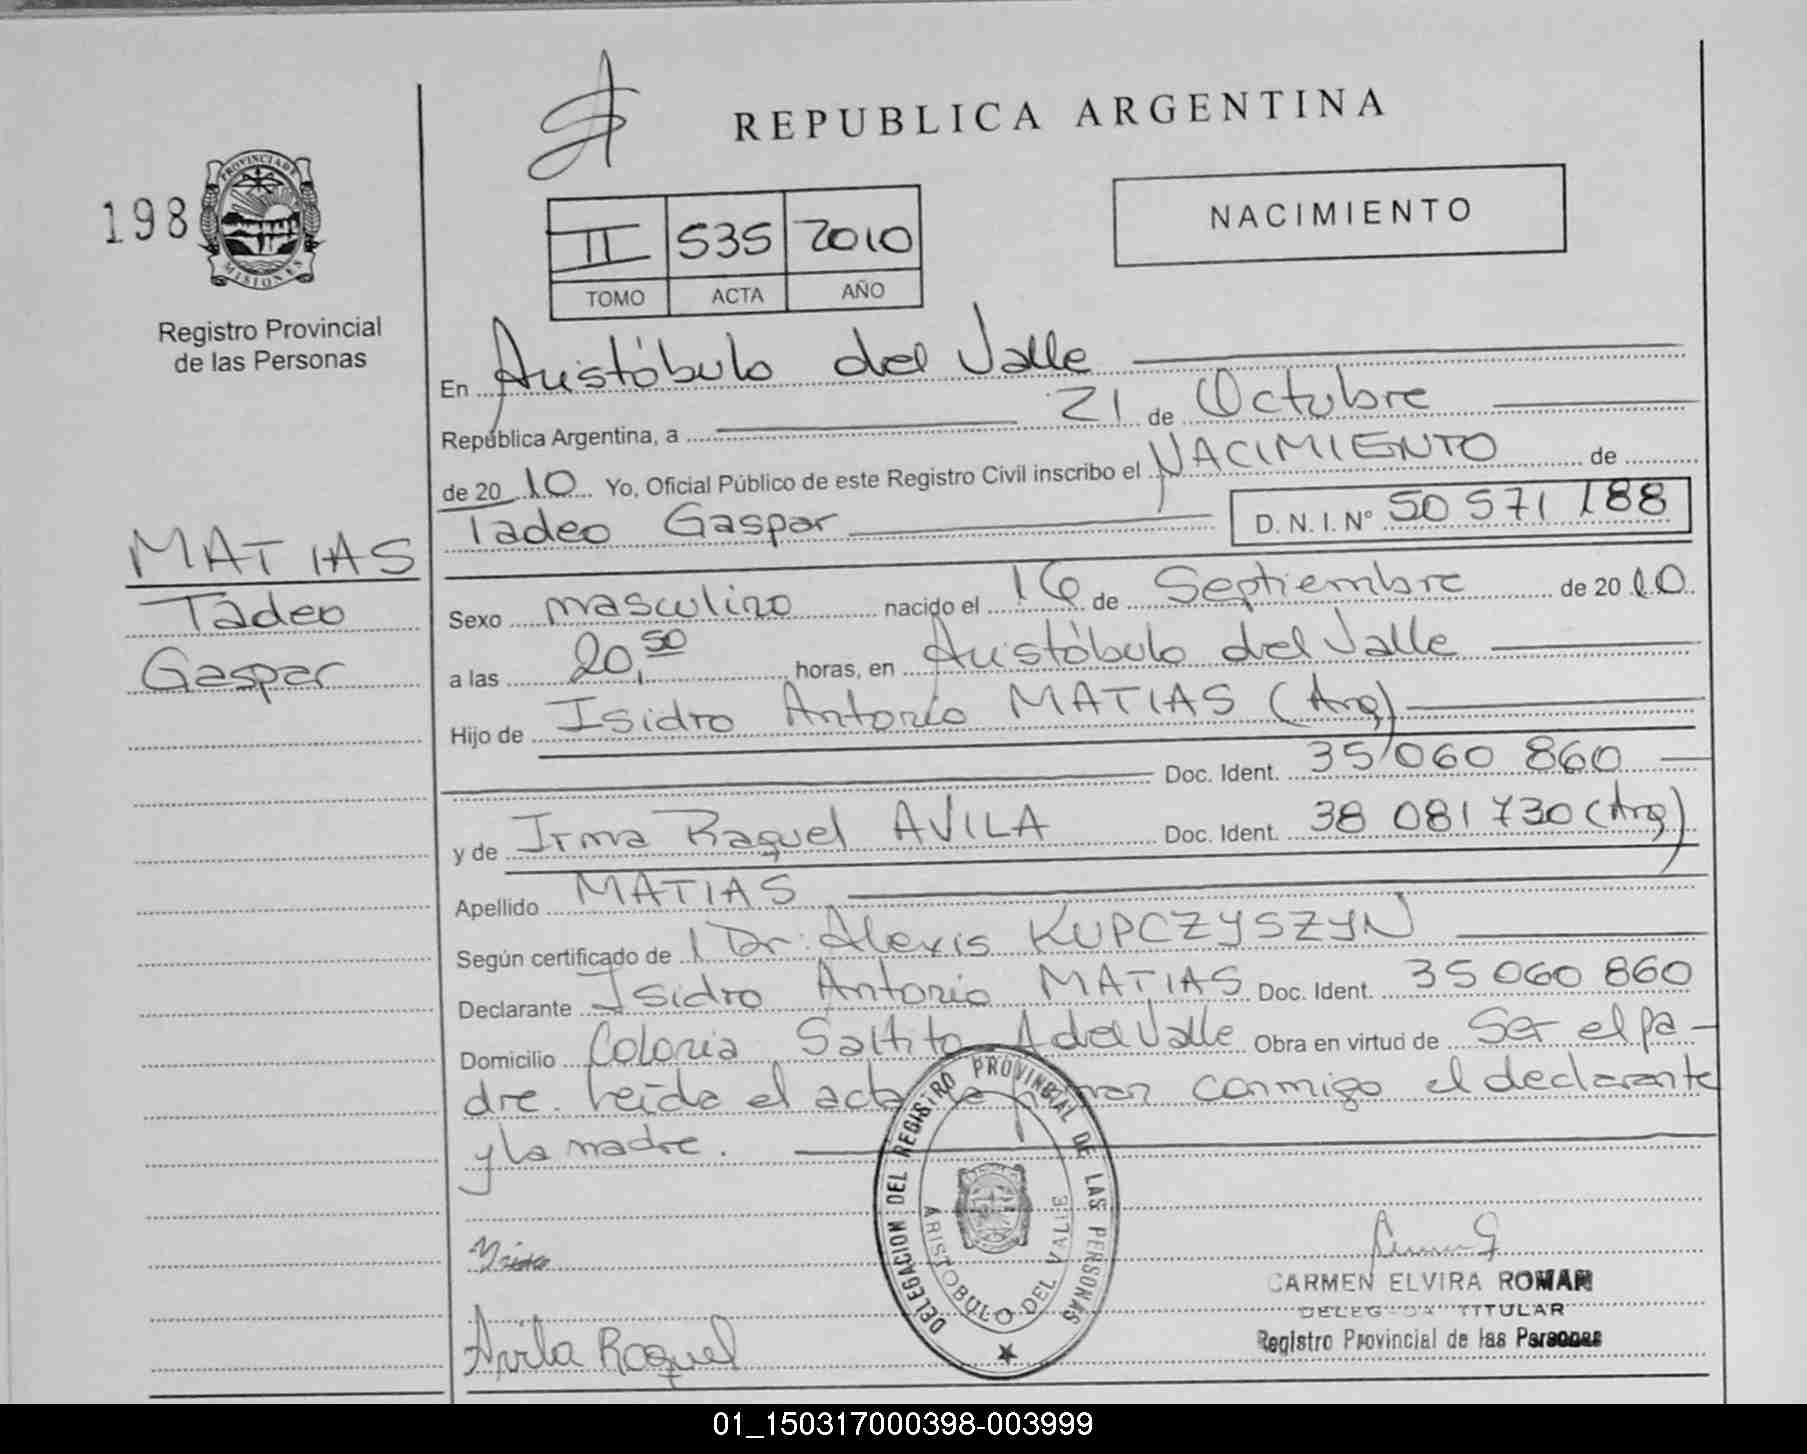 REPUBLICA ARGENTINA
198
PROVINCIA DE
MISIONES
Registro Provincial
de las Personas
II 535 2010
TOMO ACTA AÑO
NACIMIENTO
En Aristóbulo del Valle
República Argentina, a 21 de Octubre
de 20 10 Yo, Oficial Público de este Registro Civil inscribo el NACIMIENTO de
Tadeo Gaspar D.N.I. Nº 50 571 188
MATIAS
Tadeo
Gaspar
Sexo masculino nacido el 16 de Septiembre de 20 10
a las 20,50 horas, en Aristóbulo del Valle
Hijo de Isidro Antonio MATIAS (Arg)
Doc. Ident. 35 060 860
y de Irma Raquel AVILA Doc. Ident. 38 081 730 (Arg)
Apellido MATIAS
Según certificado de l Dr. Alexis KUPCZYSZYN
Declarante Isidro Antonio MATIAS Doc. Ident. 35 060 860
Domicilio Colonia Saltito A del Valle Obra en virtud de Ser el pa-
dre. Leída el acta la firman conmigo el declarante
y la madre.
DELEGACION DEL REGISTRO PROVINCIAL DE LAS PERSONAS
ARISTOBULO DEL VALLE
Avila Raquel
CARMEN ELVIRA ROMAN
DELEGADA TITULAR
Registro Provincial de las Personas
01_150317000398-003999